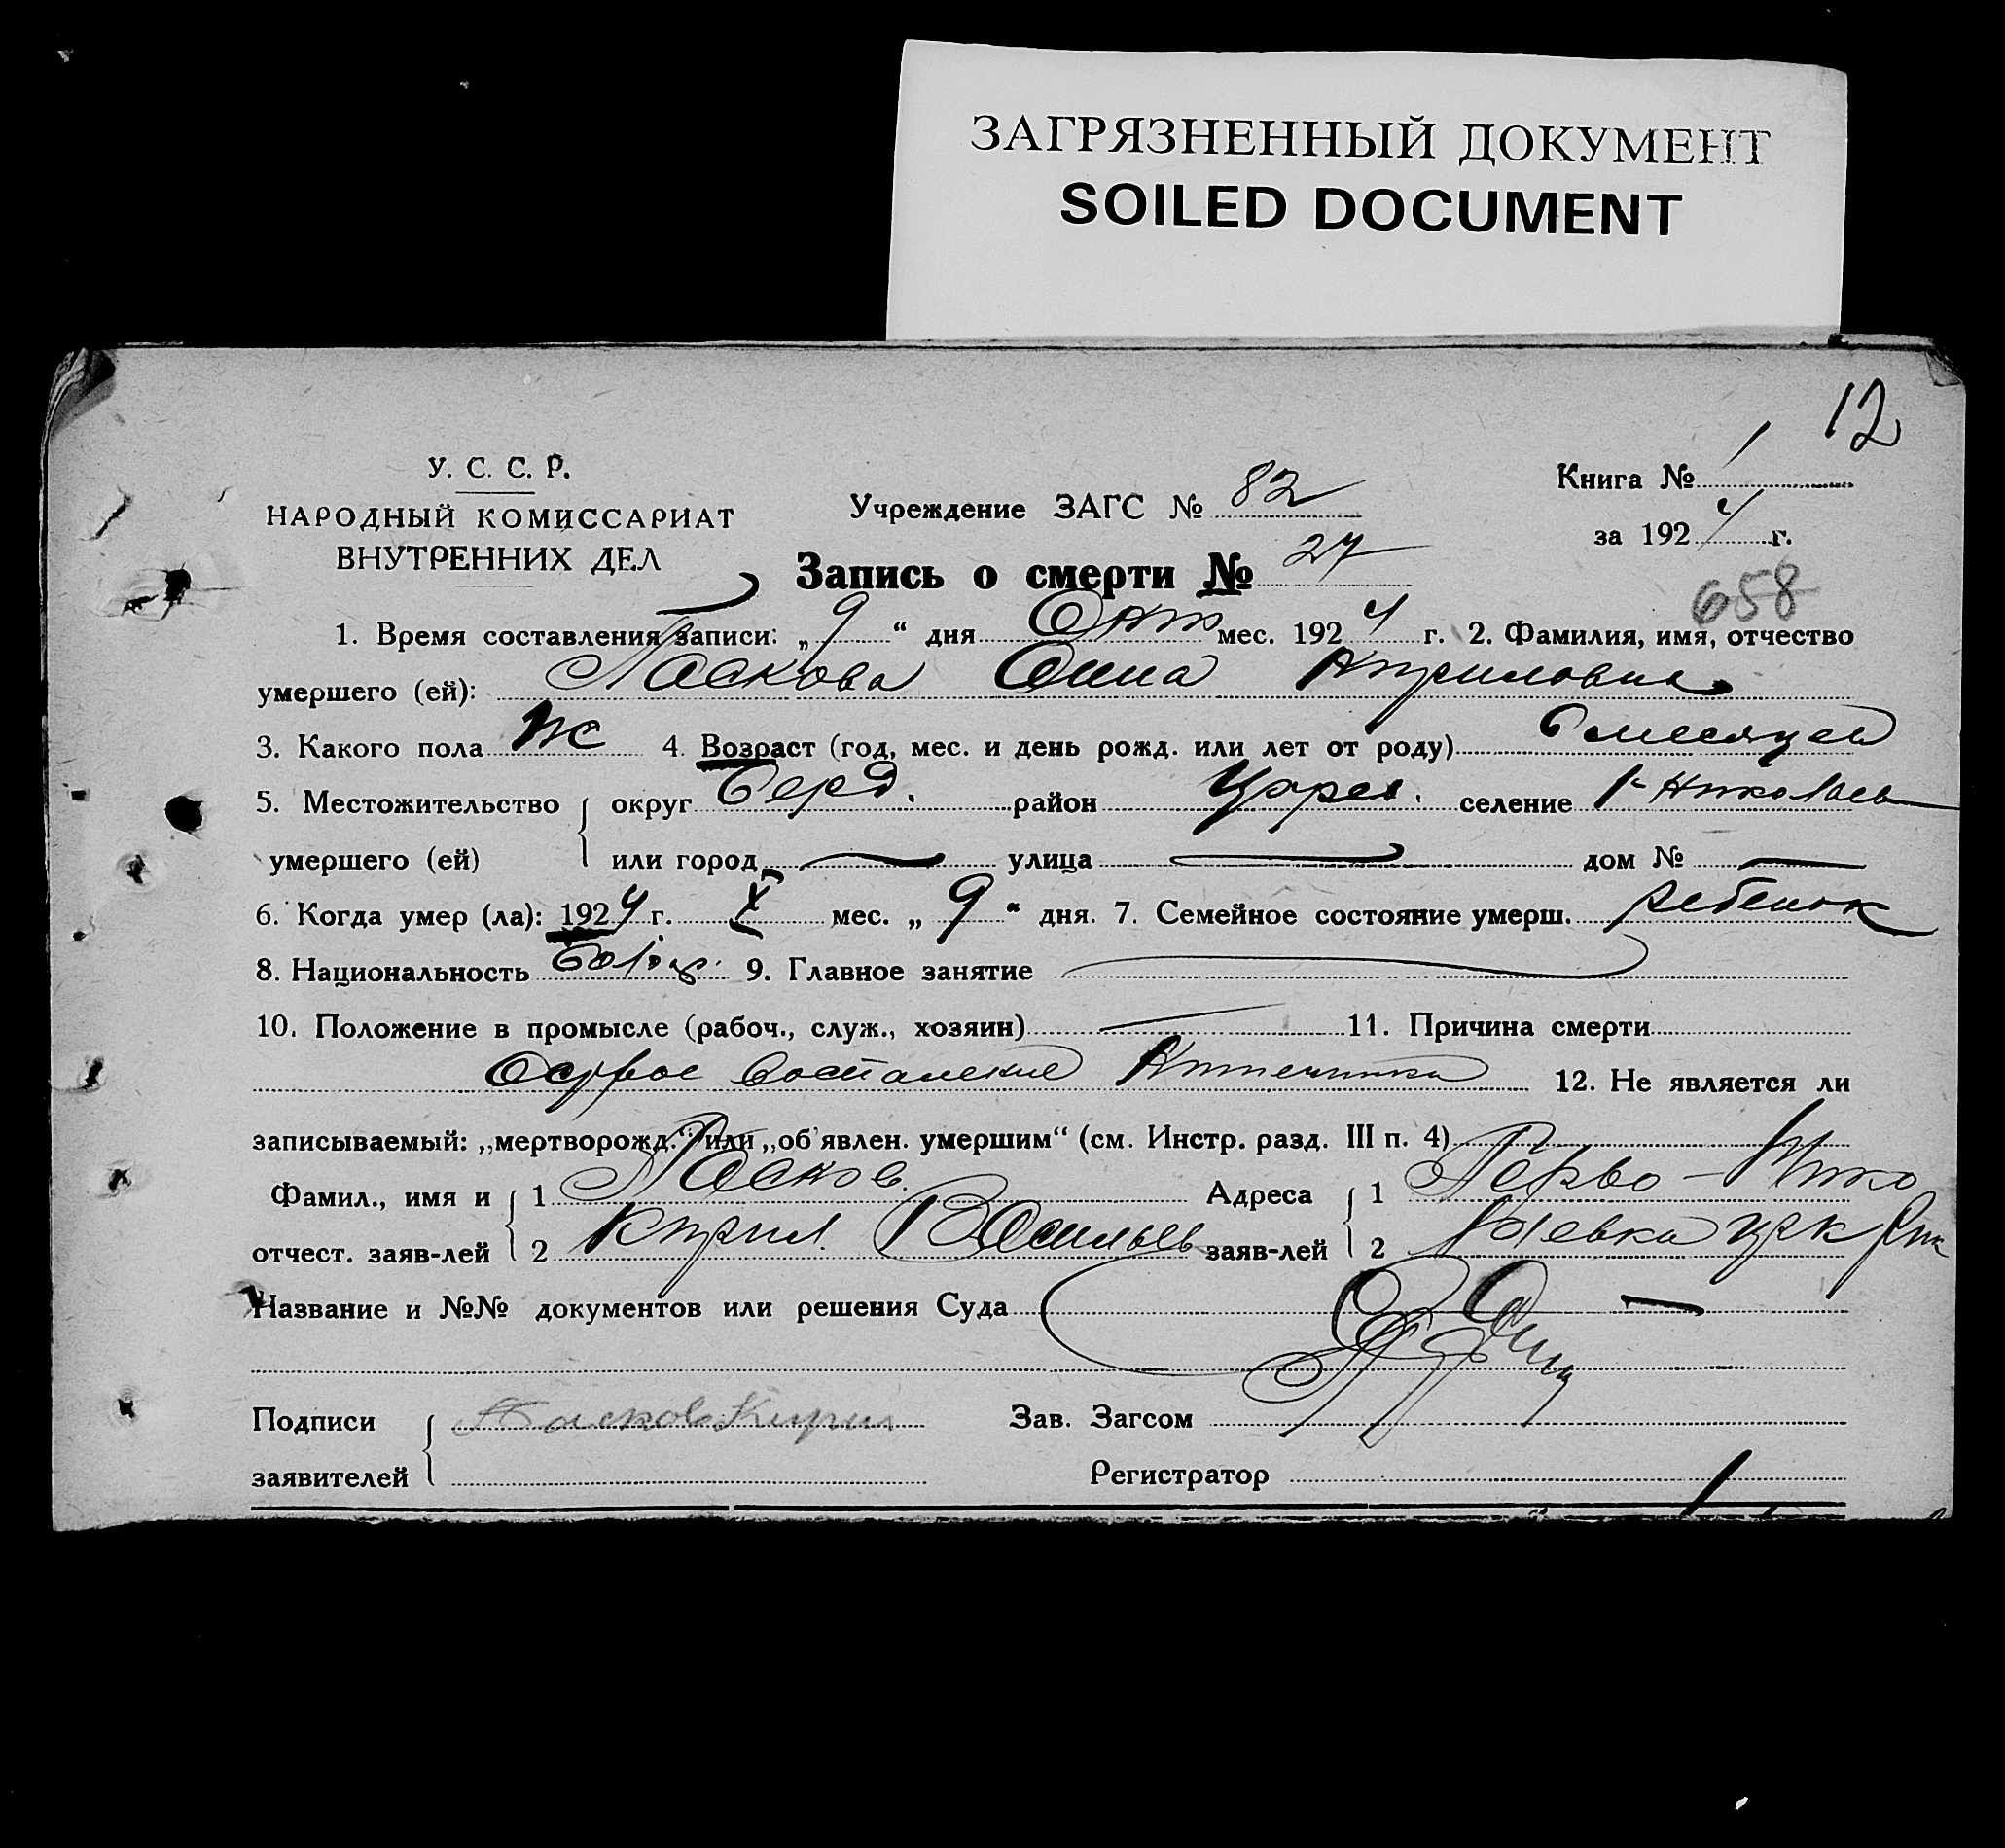 ЗАГРЯЗНЕННЫЙ ДОКУМЕНТ
SOILED DOCUMENT
12
У. С. С. Р.
НАРОДНЫЙ КОМИССАРИАТ
ВНУТРЕННИХ ДЕЛ
Учреждение ЗАГС № 82
Книга № 1
за 1924 г.
Запись о смерти № 27
658
1. Время составления записи: „9“ дня Окт мес. 1924 г. 2. Фамилия, имя, отчество
умершего (ей): Паскова Анна Кириловна
3. Какого пола Ж 4. Возраст (год, мес. и день рожд. или лет от роду) 6 месяцев
5. Местожительство округ Берд. район Царев. селение 1-Николаев
умершего (ей) или город — улица — дом № —
6. Когда умер (ла): 1924 г. X мес. „9“ дня. 7. Семейное состояние умерш. ребенок
8. Национальность Болг. 9. Главное занятие —
10. Положение в промысле (рабоч., служ., хозяин) — 11. Причина смерти
Острое воспаление Кишечника 12. Не является ли
записываемый: „мертворожд.“ или „об'явлен. умершим“ (см. Инстр. разд. III п. 4)
Фамил., имя и 1 Пасков Адреса 1 Перво-Нико
отчест. заяв-лей 2 Кирил Васильев заяв-лей 2 лаевка
Название и №№ документов или решения Суда —
Подписи Пасков Кирил Зав. Загсом
заявителей Регистратор